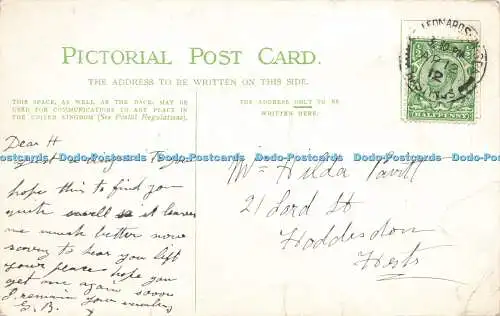 PICTORIAL POST CARD.
THE ADDRESS TO BE WRITTEN ON THIS SIDE.
THIS SPACE, AS WELL AS THE BACK, MAY BE
USED FOR COMMUNICATIONS TO ANY PLACE IN
THE UNITED KINGDOM (See Postal Regulations).
THE ADDRESS ONLY TO BE
WRITTEN HERE:
LEONARDS
12
HALFPENNY
Dear H
Just a
hope this to find you
quite well as it leaves
me much better now
sorry to hear you lift
your peace hope you
get one again soon
I remain your
E. B. X
Hilda
21 Lord St
Hoddesdon
Herts
Dodo-Postcards Dodo-Postcards Dodo-Postcards Dodo-Postcards Dodo-Postcards Dodo-Postcards